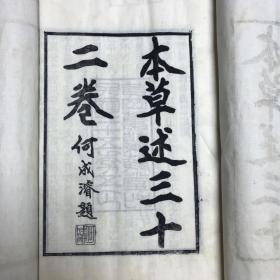 本草述三十
二卷
何成濬題